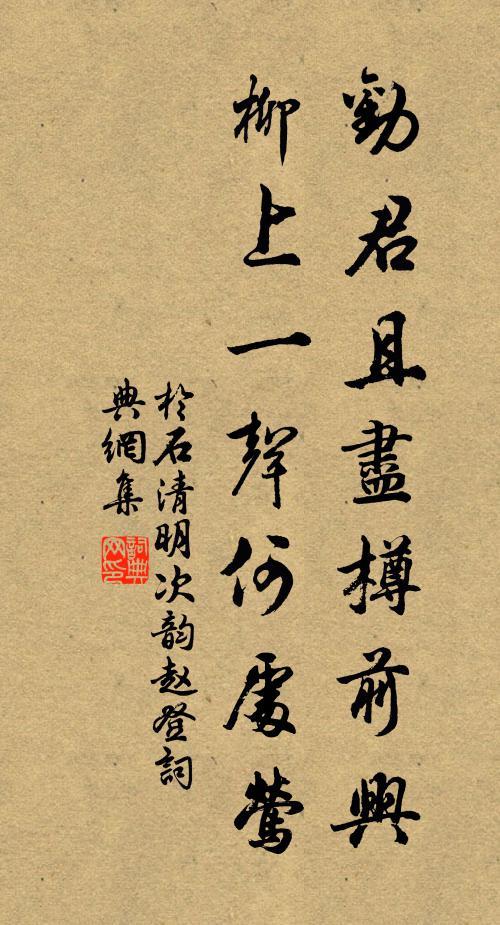 勸君且盡樽前興
柳上一聲何處鶯
於石清明次韵赵登詞
典網集
詞典
网印